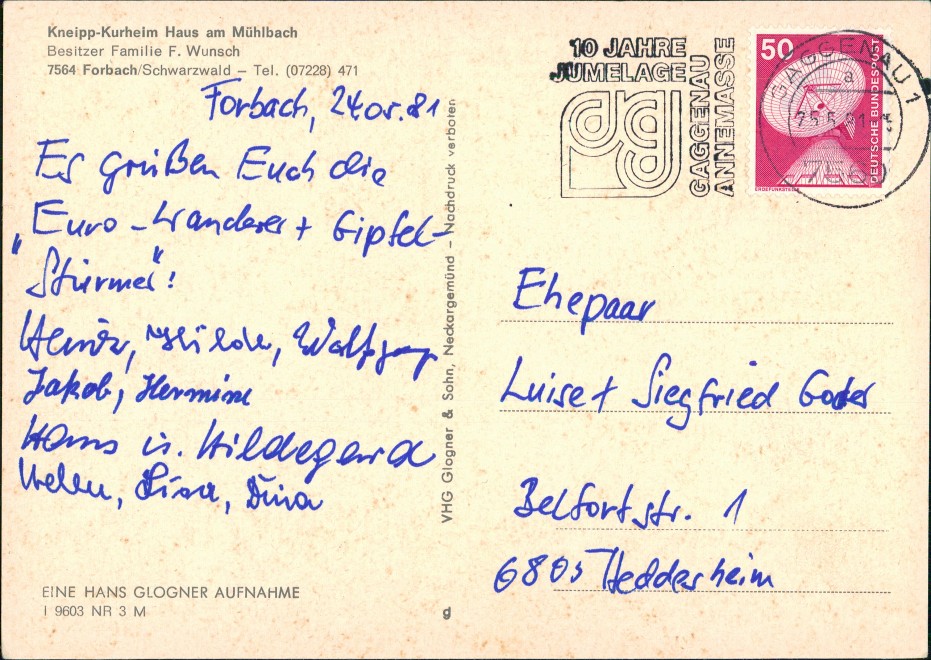 Kneipp-Kurheim Haus am Mühlbach
Besitzer Familie F. Wunsch
7564 Forbach/Schwarzwald – Tel. (07228) 471
Forbach, 24.05.81
Es grüßen Euch die
„Euro-Wanderer + Gipfel-
Stürmer"!
Heinz, Hilde, Wolfgang
Jakob, Hermine
Hans u. Hildegard
Hellen, Lina, Dina
EINE HANS GLOGNER AUFNAHME
I 9603 NR 3 M
VHG Glogner & Sohn, Neckargemünd – Nachdruck verboten
g
10 JAHRE
JUMELAGE
GAGGENAU
ANNEMASSE
50
DEUTSCHE BUNDESPOST
ERDEFUNKSTELLE
GAGGENAU 1
a
25.5.81
7560
Ehepaar
Luise + Siegfried
Belfortstr. 1
6805 Heddesheim